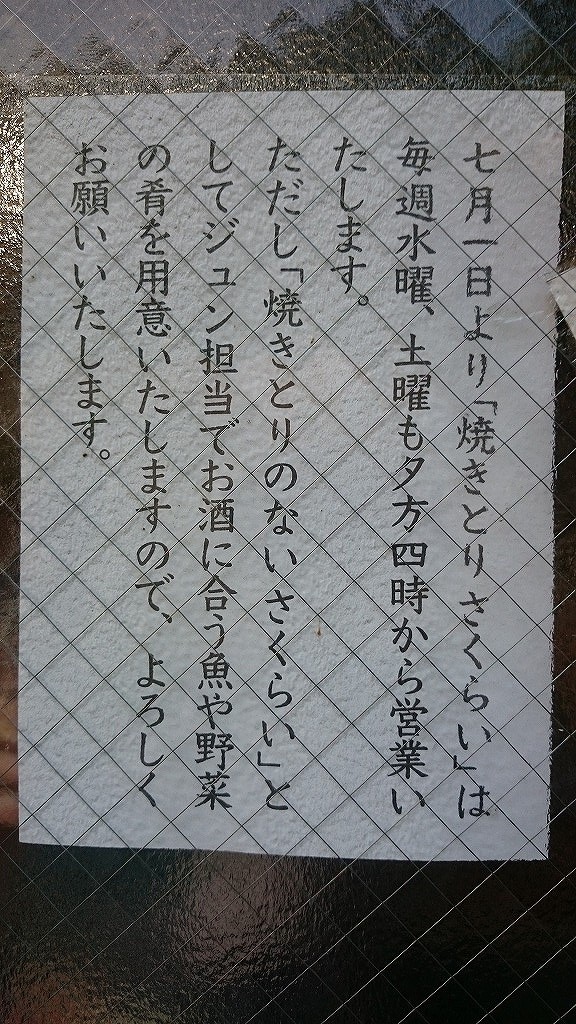 七月一日より「焼きとりさくらい」は
毎週水曜、土曜も夕方四時から営業い
たします。
ただし「焼きとりのないさくらい」と
してジュン担当でお酒に合う魚や野菜
の肴を用意いたしますので、よろしく
お願いいたします。